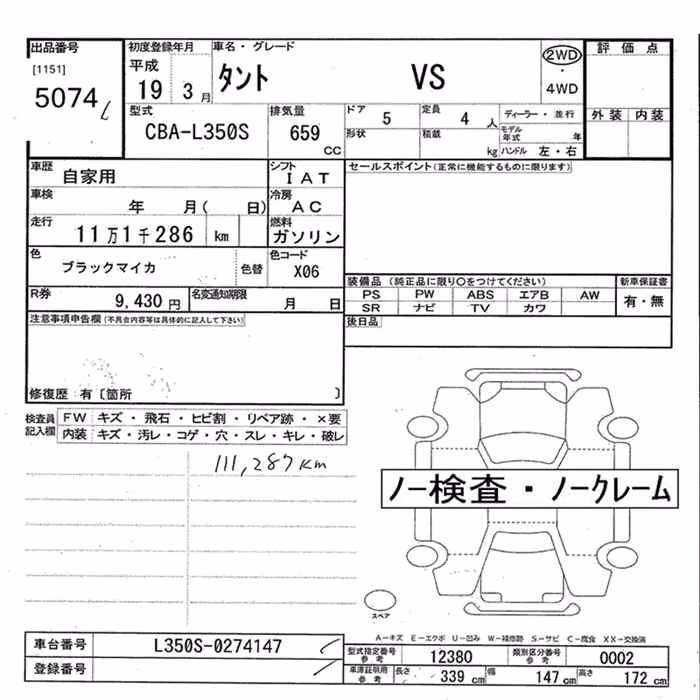 出品番号 初度登録年月 車名・グレード 2WD ・ 4WD 評価点
[1151] 平成 19 3月 タント VS
5074
型式 排気量 ドア 5 定員 4人 ディーラー・並行 外装 内装
CBA-L350S 659 CC 形状 積載 kg モデル年式 年
ハンドル 左・右
車歴 自家用 シフト IAT セールスポイント(正常に機能するものに限ります)
車検 年 月( 日) 冷房 AC
走行 11万1千286 km 燃料 ガソリン
色 ブラックマイカ 色替 色コード X06
R券 9,430円 名変通知期限 月 日
装備品 (純正品に限り○をつけてください) 新車保証書
PS PW ABS エアB AW 有・無
SR ナビ TV カワ
後日品
注意事項申告欄(不具合内容等は具体的に記入して下さい)
修復歴 有〔箇所 〕
検査員記入欄 FW キズ・飛石・ヒビ割・リペア跡・×要
内装 キズ・汚レ・コゲ・穴・スレ・キレ・破レ
111,287km
ノー検査・ノークレーム
スペア
A-キズ E-エクボ U-凹み W-補修跡 S-サビ C-腐食 XX-交換済
車台番号 L350S-0274147
登録番号
型式指定番号 参考 12380 類別区分番号 参考 0002
車庫証明用 参考 長さ 339 cm 幅 147 cm 高さ 172 cm